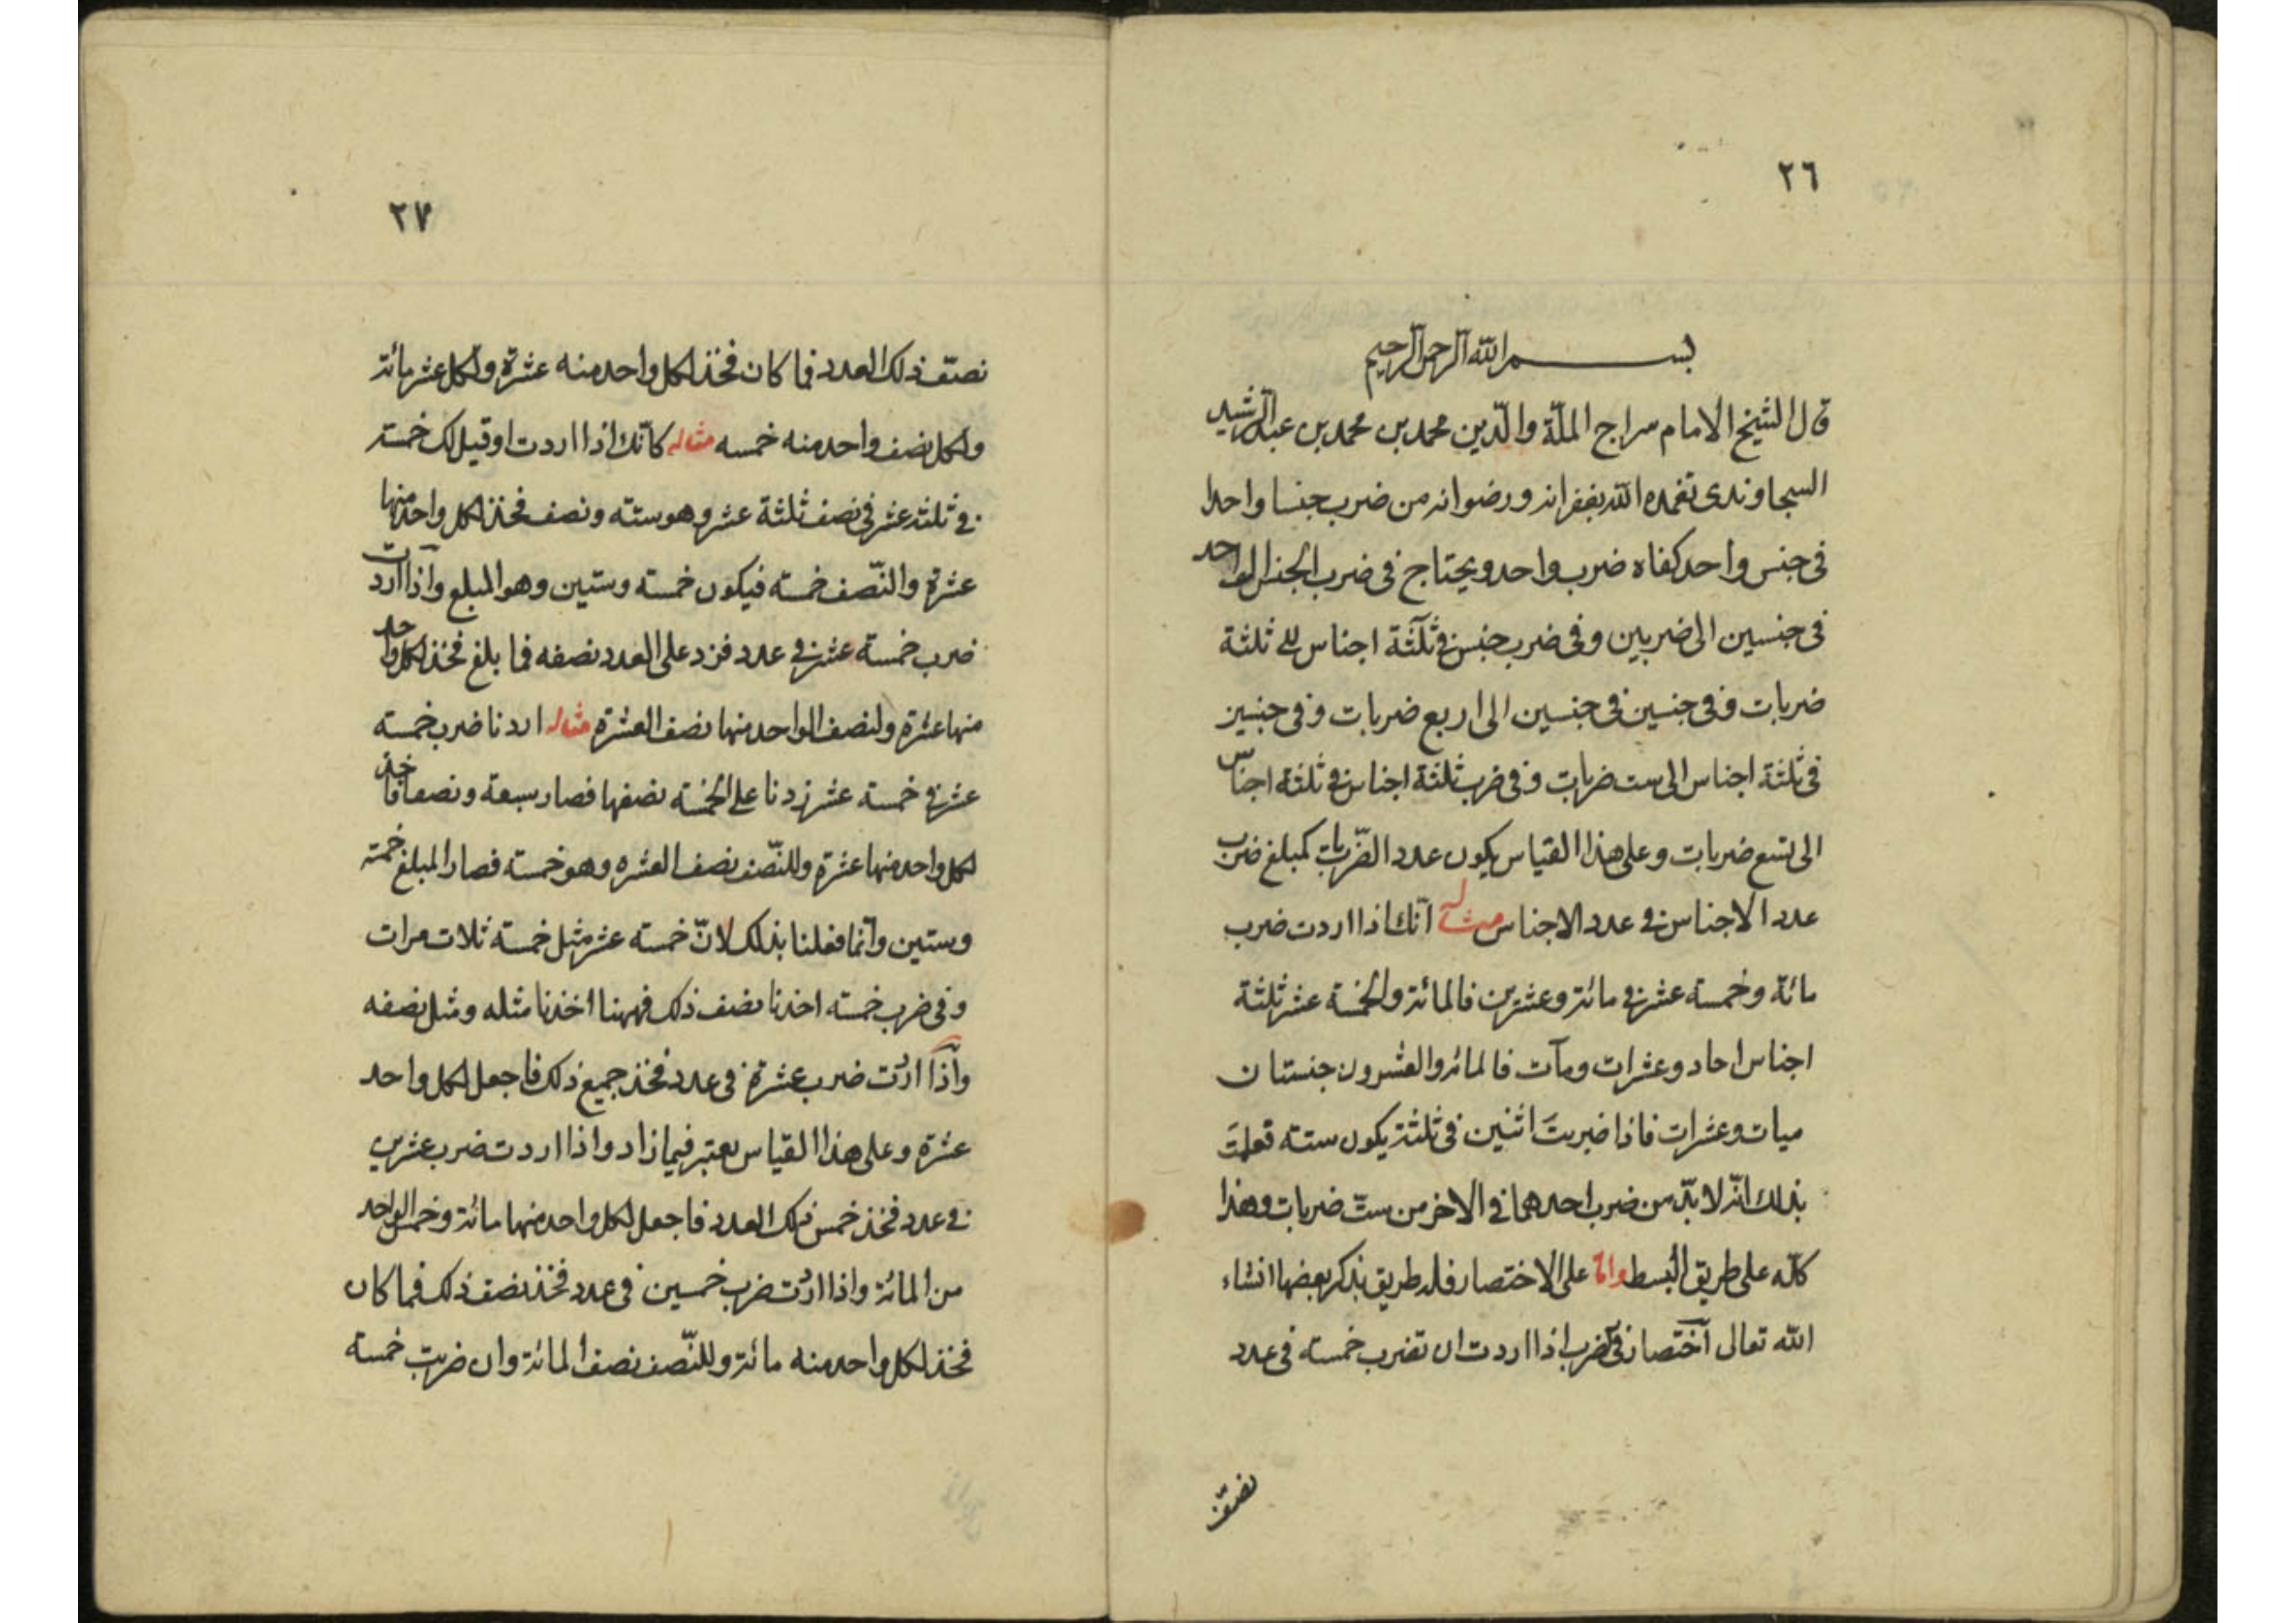 ٢٦
بســـــم الله الرحمن الرحيم
قال الشيخ الامام سراج الملّة والدّين محمد بن محمد بن عبد الرّشيد
السجاوندى تغمده الله بغفرانه ورضوانه من ضرب جنسا واحدا
فى جنس واحد كفاه ضرب واحد ويحتاج فى ضرب الجنس الواحد
فى جنسين الى ضربين وفى ضرب جنس فى ثلثة اجناس الى ثلثة
ضربات وفى جنسين فى جنسين الى اربع ضربات وفى جنسين
فى ثلثة اجناس الى ست ضربات وفى ضرب ثلثة اجناس فى ثلثة اجناس
الى تسع ضربات وعلى هذا القياس يكون عدد الضّربات كمبلغ ضرب
عدد الاجناس فى عدد الاجناس مثاله انّك اذا اردت ضرب
مائة وخمسة عشر فى مائة وعشرين فالمائة والخمسة عشر ثلثة
اجناس احاد وعشرات ومآت فالمائة والعشرون جنستان
ميات وعشرات فاذا ضربتَ اثنين فى ثلثة يكون ستة فعلمتَ
بذلك انّه لا بدّ من ضرب احدهما فى الاخر من ستّ ضربات وهذا
كلّه على طريق البسط وامّا على الاختصار فله طريق نذكر بعضها انشاء
الله تعالى اختصار فى ضرب اذا اردت ان تضرب خمسة فى عدد
نصّف
٢٧
نصّف ذلك العدد فما كان فخذ لكل واحد منه عشرة ولكل عشر مائة
ولكل نصف واحد منه خمسه مثاله كانّك اذا اردت او قيل لك خمسة
فى ثلثة عشر فى نصف ثلثة عشر وهو ستة ونصف فخذ لكل واحد منها
عشرة والنّصف خمسة فيكون خمسة وستين وهو المبلغ واذا اردت
ضرب خمسة عشر فى عدد فزد على العدد نصفه فما بلغ فخذ لكل واحد
منها عشرة ولنصف الواحد منها نصف العشرة مثاله اردنا ضرب خمسة
عشر فى خمسة عشر زدنا على الخمسة نصفها فصار سبعة ونصفا فاخذ
لكل واحد منها عشرة وللنّصف نصف العشره وهو خمسة فصار المبلغ خمسة
وستين وانّما فعلنا بذلك لانّ خمسة عشر مثل خمسة ثلات مرات
وفى ضرب خمسة اخذنا نصف ذلك فههنا اخذنا مثله ومثل نصفه
واذا اردت ضرب عشرة فى عدد فخذ جميع ذلك فاجعل لكل واحد
عشرة وعلى هذا القياس يعتبر فيما زاد واذا اردت ضرب عشرين
فى عدد فخذ خمس ذلك العدد فاجعل لكل واحد منها مائة وخمس الواحد
من المائة واذا اردت ضرب خمسين فى عدد فخذ نصف ذلك فما كان
فخذ لكل واحد منه مائة وللنّصف نصف المائة وان ضربت خمسة